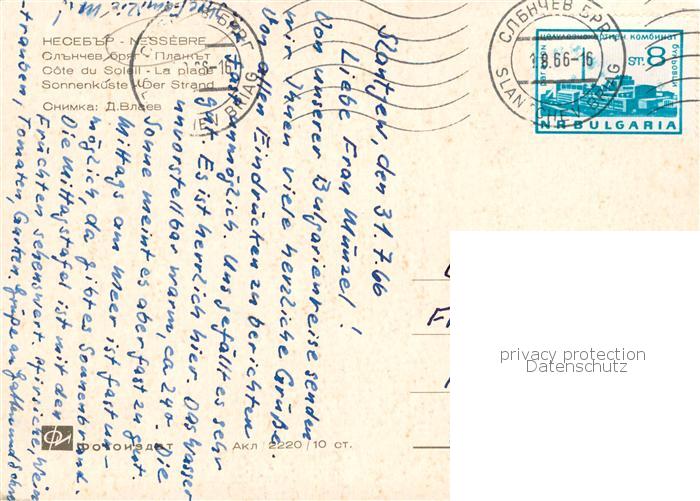 НЕСЕБЪР - NESSÈBRE
Слънчев бряг - Плажът
Côte du Soleil - La plage
Sonnenküste - Der Strand
Снимка: Д. Влаев
СЛЪНЧЕВ БРЯГ
1.8.66-16
SLANTCHEV BRIAG
целулозно-хартиен комбинат
ST. 8
NRBULGARIA
Slantjew, den 31.7.66
Liebe Frau Münzel!
Von unserer Bulgarienreise senden
wir Ihnen viele herzliche Grüße.
Von allen Eindrücken zu berichten
ist fast unmöglich. Uns gefällt es sehr
gut. Es ist herrlich hier. Das Wasser
unvorstellbar warm, ca 24°. Die
Sonne meint es aber fast zu gut.
Mittags am Meer ist fast un-
möglich, da gibt es Sonnenbrand.
Die Mittagstafel ist mit den
Früchten sehenswert, Pfirsiche, Wein
trauben, Tomaten, Gurken. Grüße an Gatten und Sohn
Ihre Familie
Фотоиздат
Акл 2220/10 ст.
privacy protection
Datenschutz